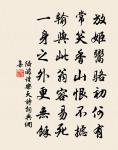 放姬鬻駱初何有
常笑香山恨不攄
輸與此翁容易死
一身之外更無餘
陸游讀樂天詩詞典網
集